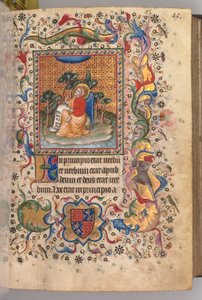 In principio erat verbū
et verbum erat apud
deum et deus erat ver
bum. hoc erat in principio a